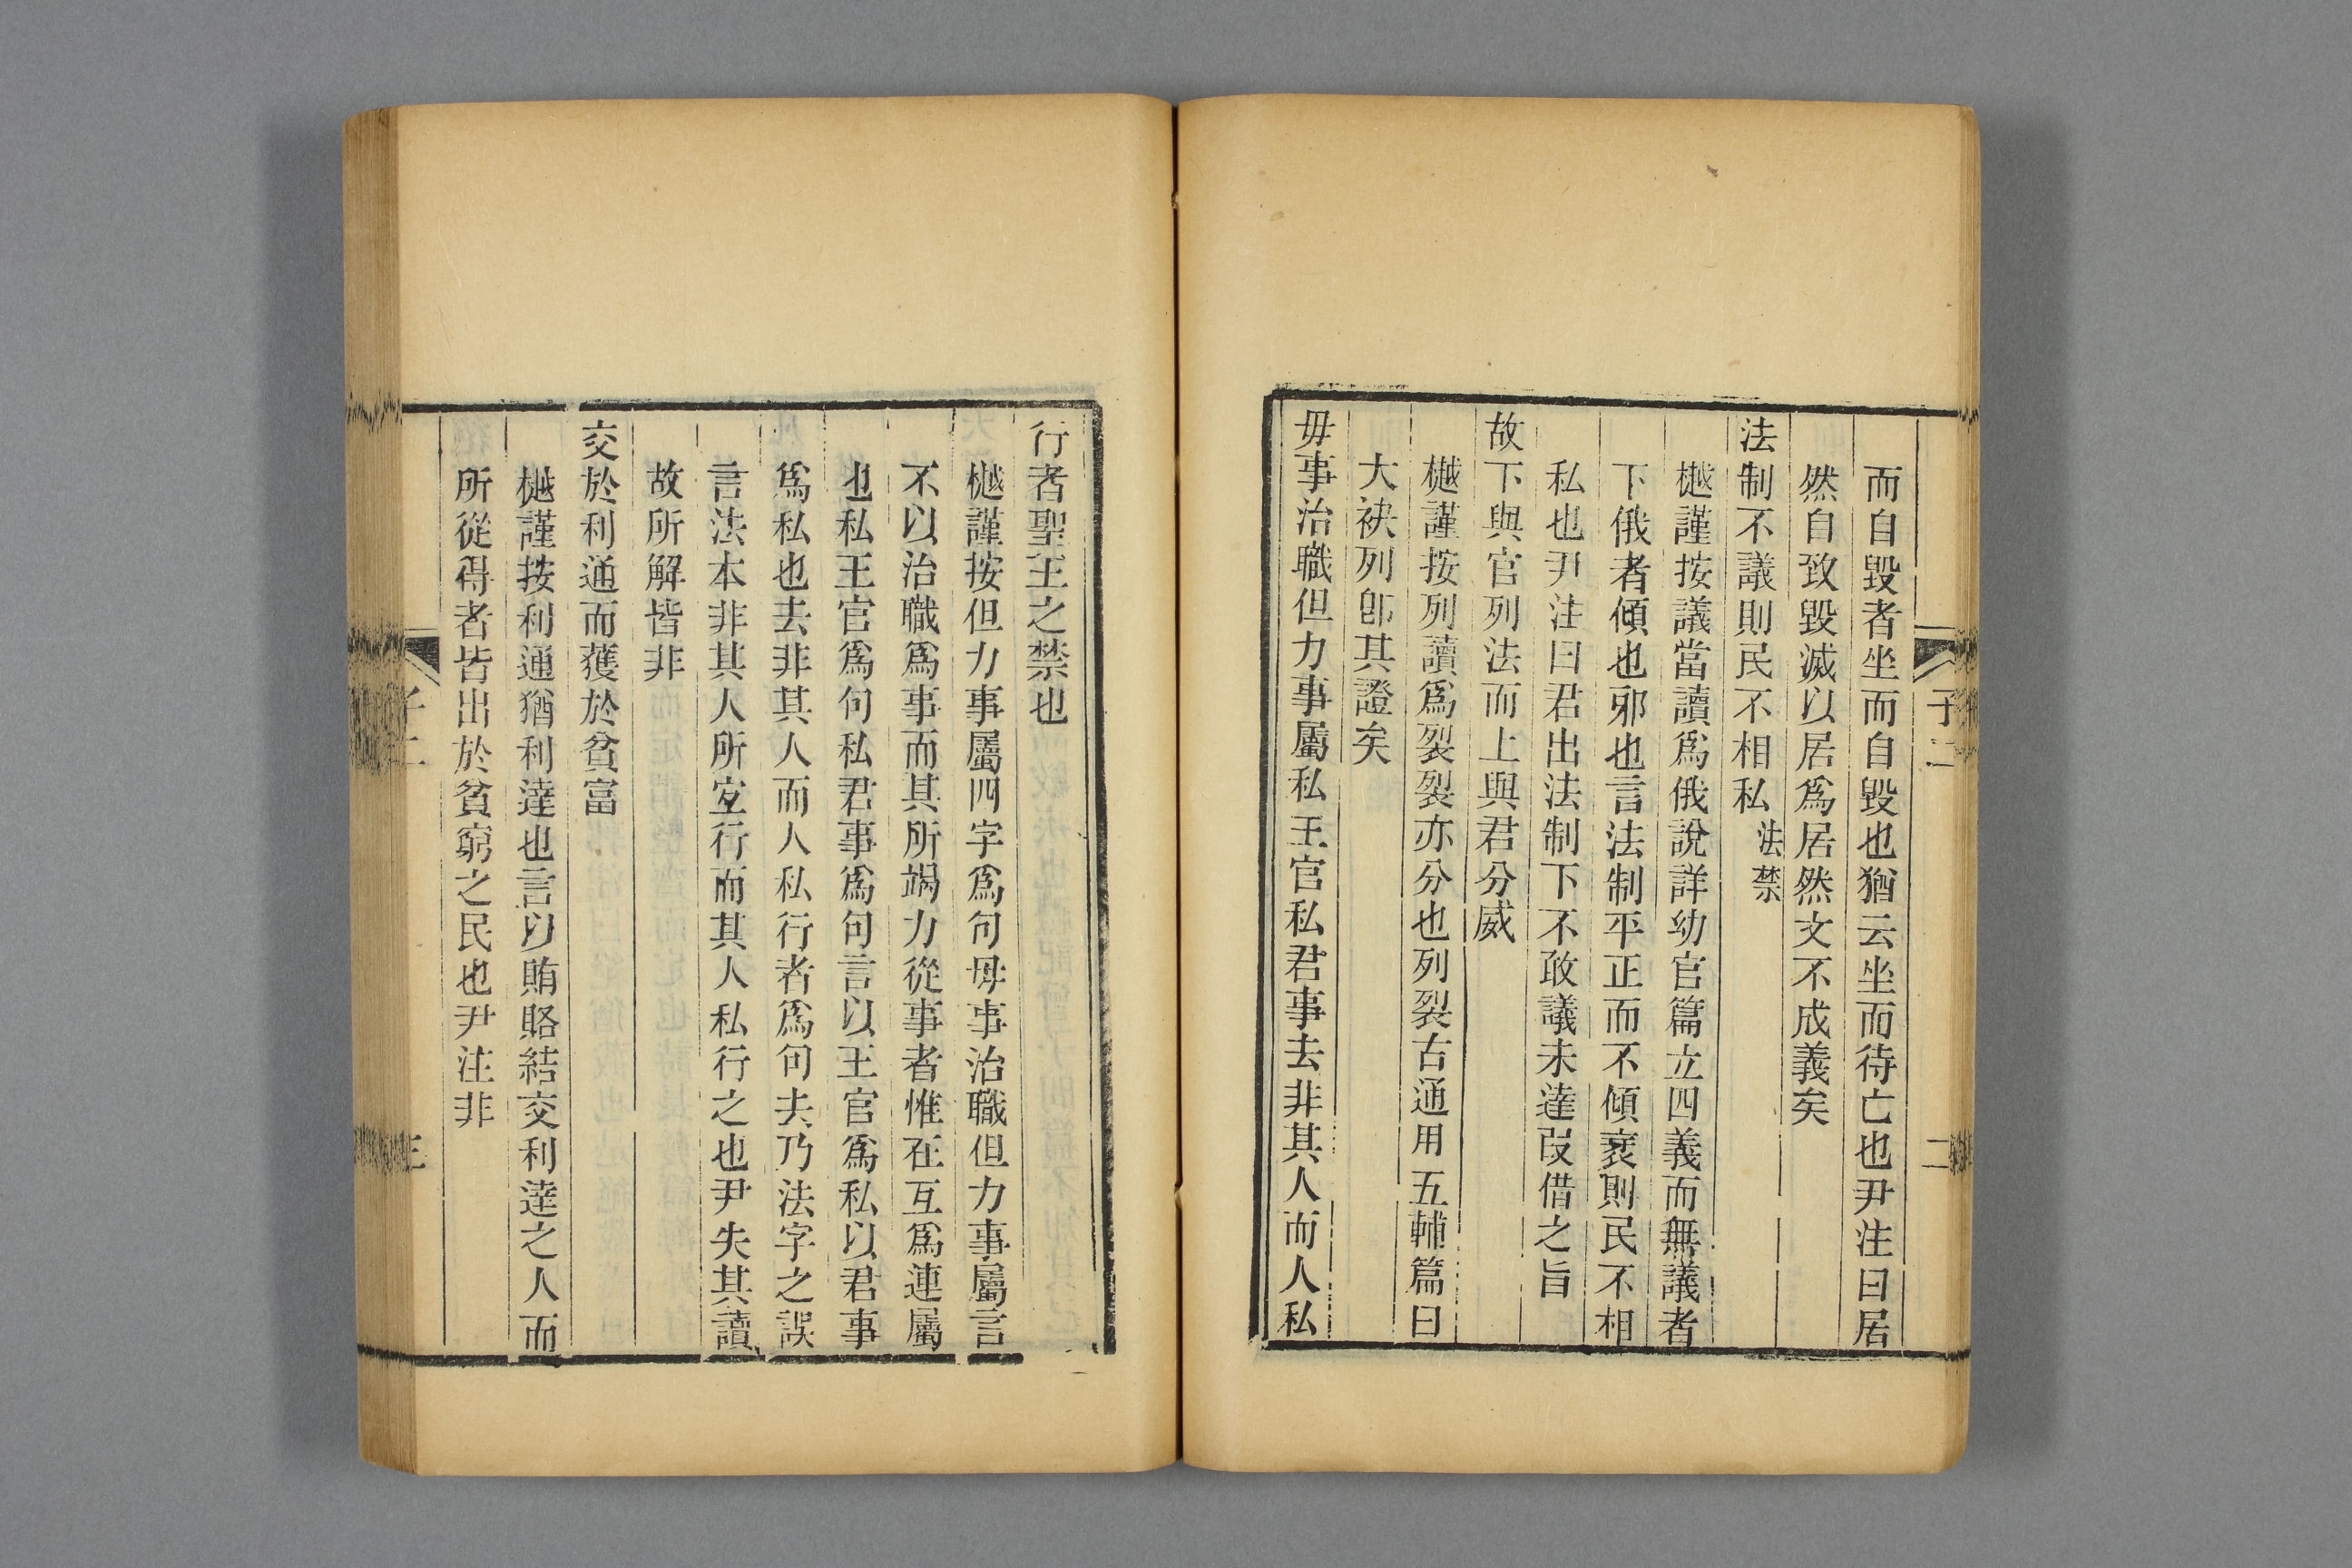 而自毀者坐而自毀也猶云坐而待亡也尹注曰居
然自致毀滅以居爲居然文不成義矣
法制不議則民不相私法禁
樾謹按議當讀爲俄說詳幼官篇立四義而無議者
下俄者傾也邪也言法制平正而不傾衺則民不相
私也尹注曰君出法制下不敢議未達叚借之旨
故下與官列法而上與君分威
樾謹按列讀爲裂裂亦分也列裂古通用五輔篇曰
大袂列卽其證矣
毋事治職但力事屬私王官私君事去非其人而人私
子二
二
行者聖王之禁也
樾謹按但力事屬四字爲句毋事治職但力事屬言
不以治職爲事而其所竭力從事者惟在互爲連屬
也私王官爲句私君事爲句言以王官爲私以君事
爲私也去非其人而人私行者爲句去乃法字之誤
言法本非其人所宜行而其人私行之也尹失其讀
故所解皆非
交於利通而獲於貧富
樾謹按利通猶利達也言以賄賂結交利達之人而
所從得者皆出於貧窮之民也尹注非
子二
三